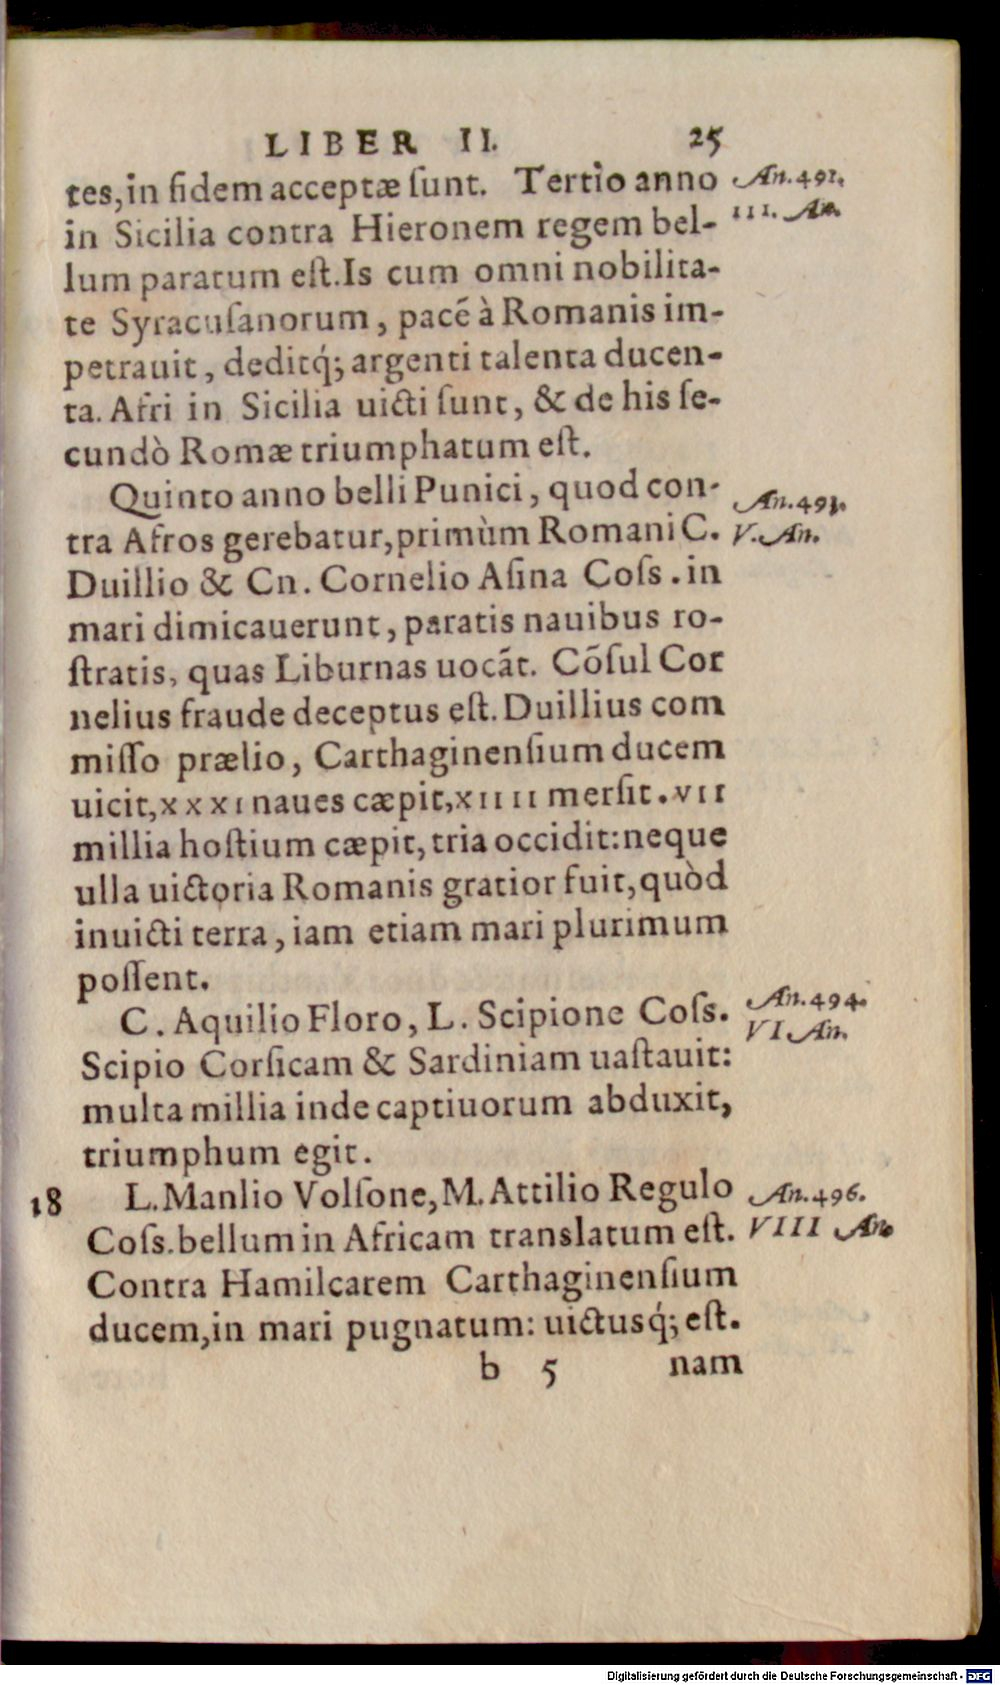 LIBER II. 25
tes, in fidem acceptæ ſunt. Tertio anno
An. 491.
in Sicilia contra Hieronem regem bel-
III. An.
lum paratum eſt. Is cum omni nobilita-
te Syracuſanorum, pacẽ à Romanis im-
petrauit, deditq́; argenti talenta ducen-
ta. Afri in Sicilia uicti ſunt, & de his ſe-
cundò Romæ triumphatum eſt.
Quinto anno belli Punici, quod con-
An. 493.
tra Afros gerebatur, primùm Romani C.
V. An.
Duillio & Cn. Cornelio Aſina Coſs. in
mari dimicauerunt, paratis nauibus ro-
ſtratis, quas Liburnas uocãt. Cõſul Cor
nelius fraude deceptus eſt. Duillius com
miſſo prælio, Carthaginenſium ducem
uicit, XXXI naues cæpit, XIIII merſit. VII
millia hoſtium cæpit, tria occidit: neque
ulla uictoria Romanis gratior fuit, quòd
inuicti terra, iam etiam mari plurimum
poſſent.
C. Aquilio Floro, L. Scipione Coſs.
An. 494.
VI An.
Scipio Corſicam & Sardiniam uaſtauit:
multa millia inde captiuorum abduxit,
triumphum egit.
18 L. Manlio Volſone, M. Attilio Regulo
An. 496.
Coſs. bellum in Africam translatum eſt.
VIII An.
Contra Hamilcarem Carthaginenſium
ducem, in mari pugnatum: uictusq́; eſt.
b 5 nam
Digitalisierung gefördert durch die Deutsche Forschungsgemeinschaft - DFG